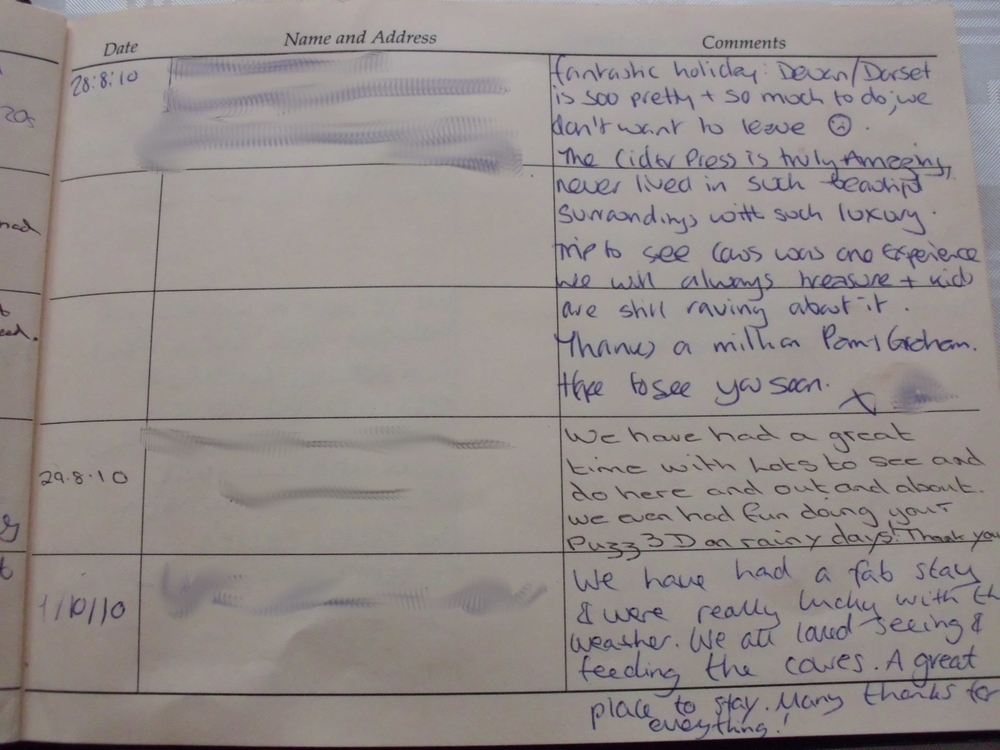 Date Name and Address Comments
20s
28:8:10
fantastic holiday: Devon/Dorset
is soo pretty + so much to do, we
don't want to leave ☹.
The Cider Press is truly Amazing,
never lived in such beautiful
surroundings with such luxury.
trip to see cows was one experience
we will always treasure + kids
are still raving about it.
Thanks a million Pam + Graham.
Hope to see you soon. X
29.8.10
We have had a great
time with Lots to see and
do here and out and about.
we even had fun doing your
Puzz 3D on rainy days! Thank you
1/10/10
We have had a fab stay
& were really lucky with th
weather. We all loved seeing &
feeding the calves. A great
place to stay. Many thanks for
everything!